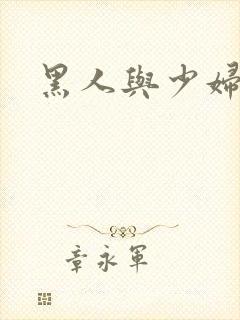 黑人與少婦
章永軍